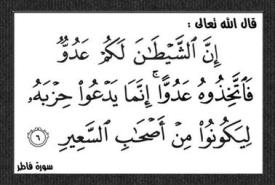 قال الله تعالى :
إِنَّ ٱلشَّيۡطَٰنَ لَكُمۡ عَدُوّٞ
فَٱتَّخِذُوهُ عَدُوًّاۚ إِنَّمَا يَدۡعُواْ حِزۡبَهُۥ
لِيَكُونُواْ مِنۡ أَصۡحَٰبِ ٱلسَّعِيرِ ٦
سورة فاطر